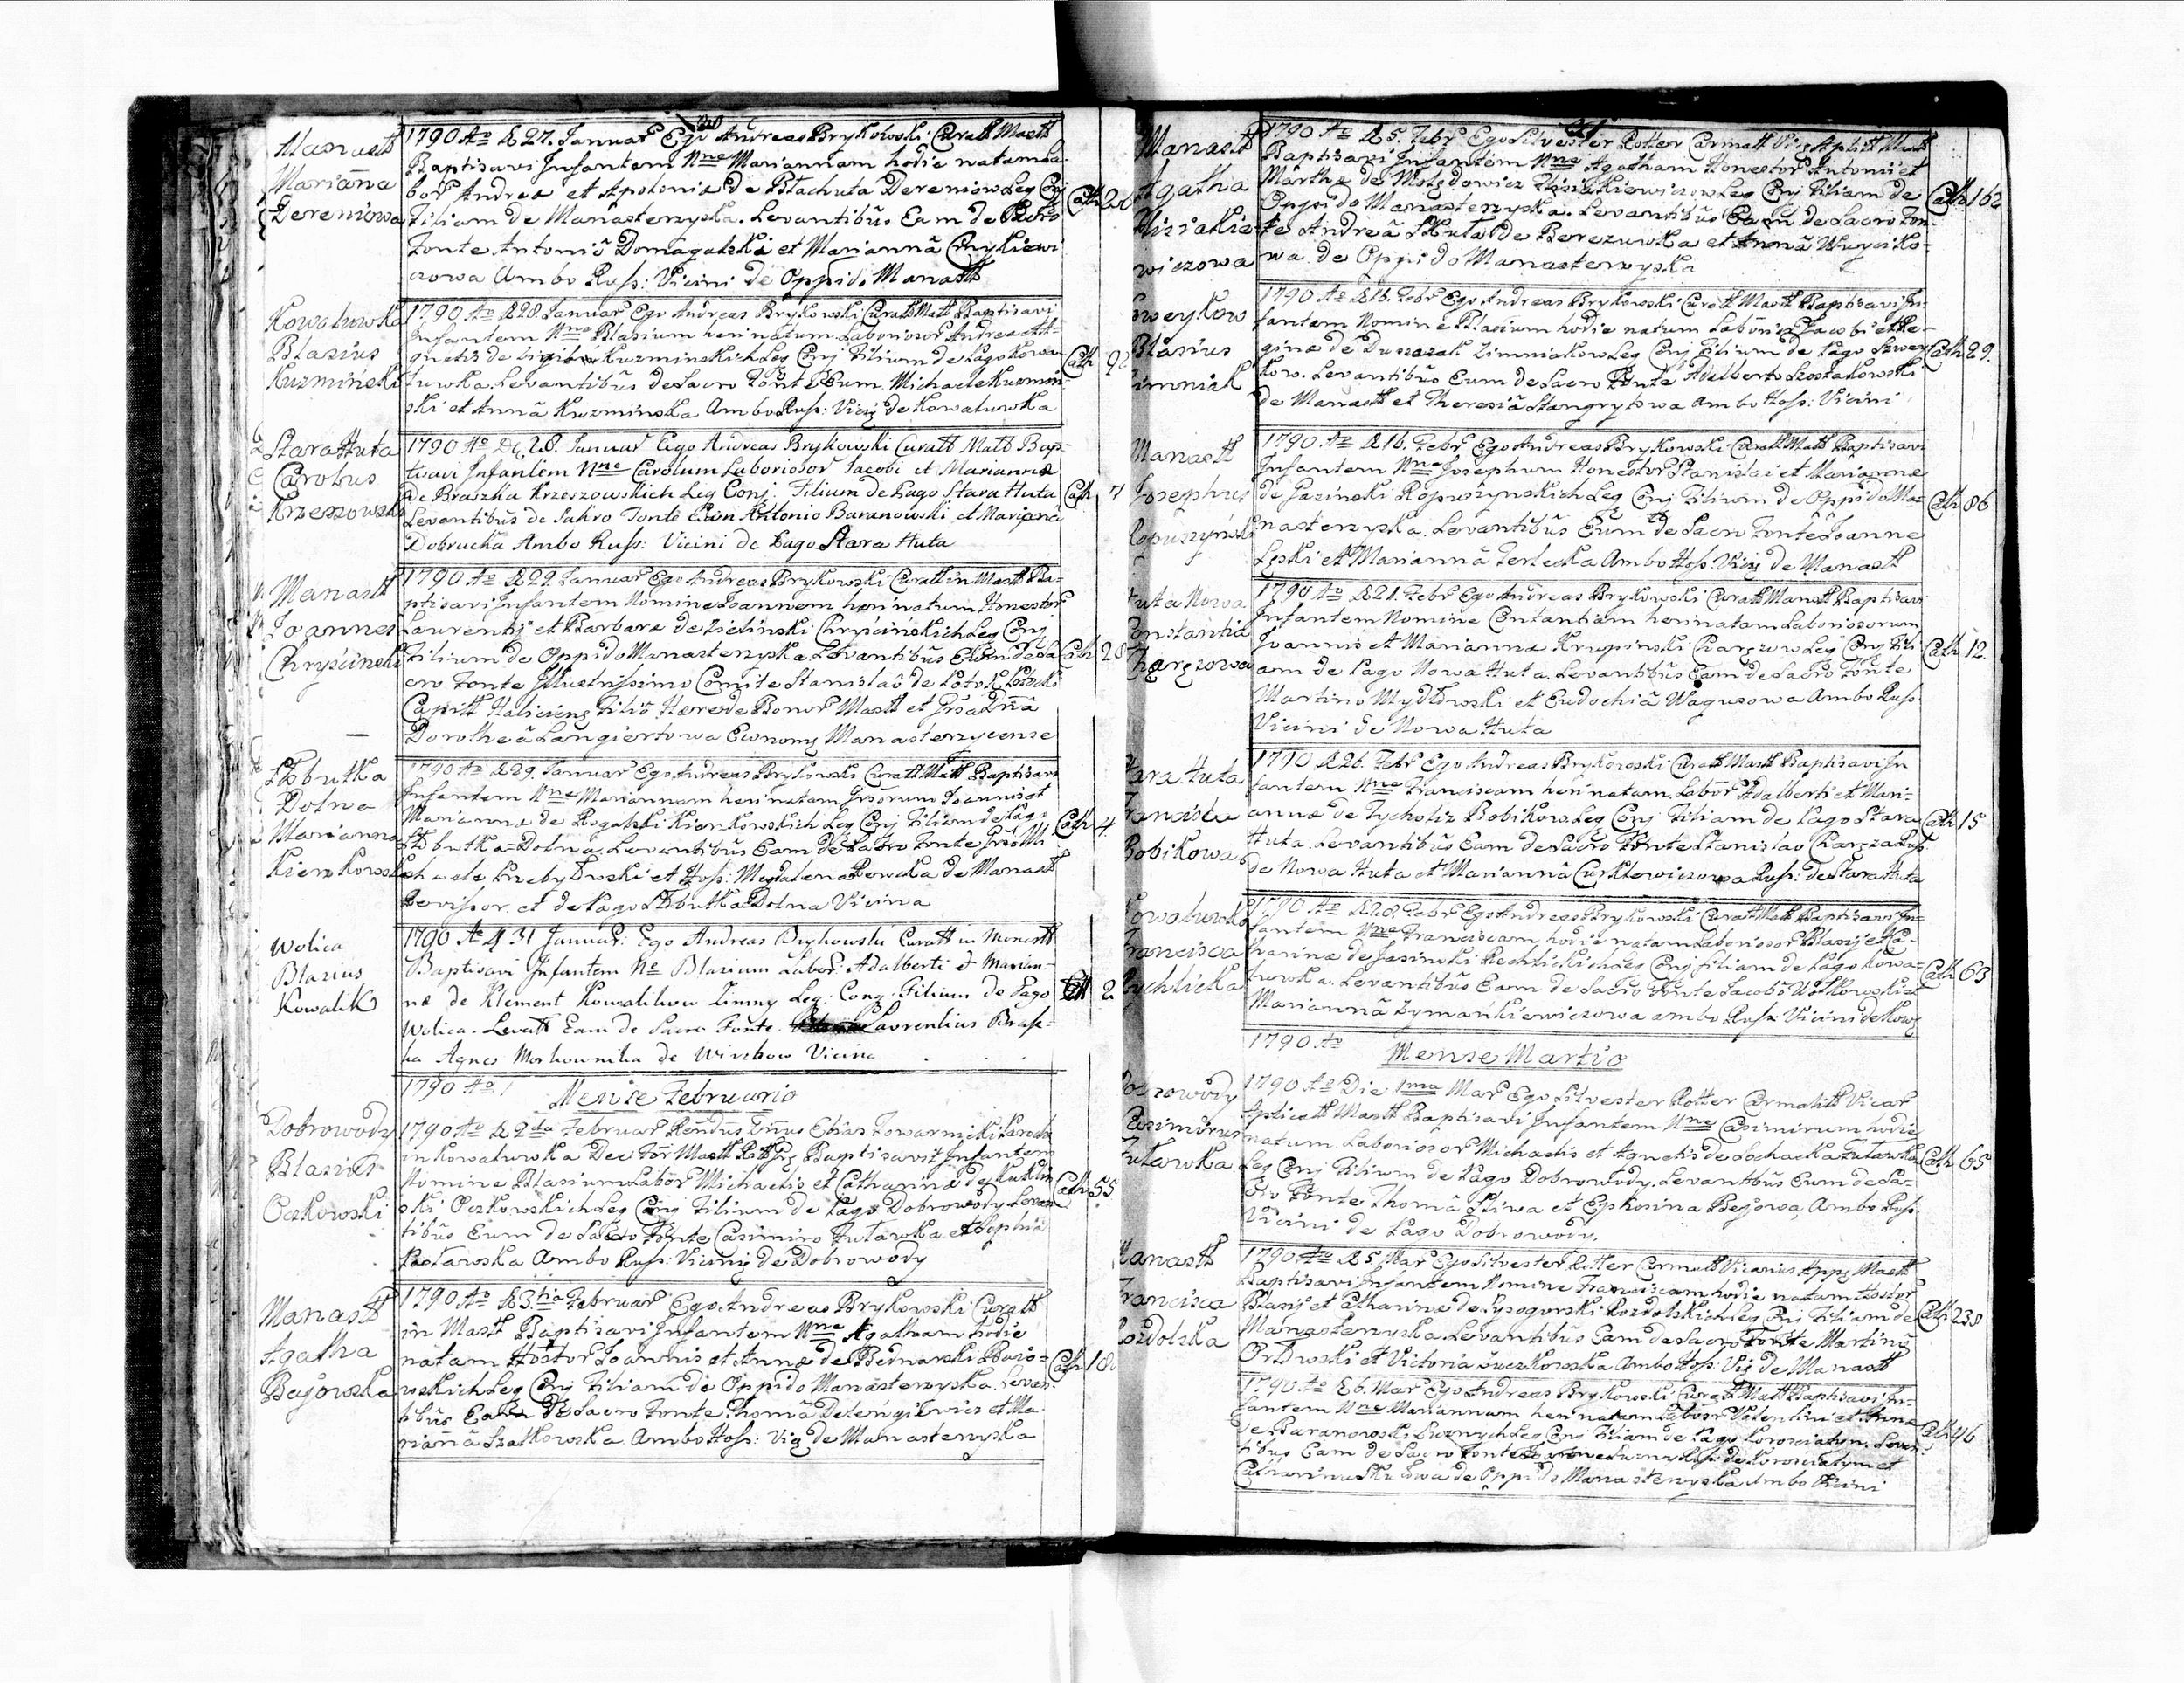 Manastt
Marianna
Dereniowa
1790 Ao D 27. Januar Ego Andreas Brykowski Curatt Mastt
Baptisavi Infantem Nne Mariannam hodie natam La-
bor Andreæ et Apoloniæ de Błachuta Dereniow Leg Conj
Filiam de Manasterzyska. Levantibus Eam de Sacro
Fonte Antonio Domagalski et Marianna
czowa Ambo Russ: Vicini de Oppido Manastt
Cath
Kowaluwka
Blasius
Kuzminski
1790 Ao D 28 Januar Ego Andreas Brykowski Curatt Matt Baptisavi
Infantem Nne Blasium heri natum Laboriosor Andreæ et A-
gnetis de Kuzminskich Leg Conj Filium de Pago Kowa-
luwka. Levantibus de Sacro Fonte Eum Michaele Kuzmin-
ski et Anna Kuzminska Ambo Russ: Vicini de Kowaluwka
Cath 92
Stara Huta
Carolus
Krzeszowski
1790 Ao D 28. Januar Ego Andreas Brykowski Curatt Matt Bap-
tisavi Infantem Nne Carolum Laboriosor Jacobi et Mariannæ
de Braszka Krzeszowskich Leg Conj. Filium de Pago Stara Huta
Levantibus de Sahro Fonte Eum Antonio Baranowski et Marianna
Dobrucka Ambo Russ: Vicini de Pago Stara Huta
Cath 7
Manastt
Joannes
Chryscinski
1790 Ao D 29. Januar Ego Andreas Brykowski Curatt in Mastt Ba-
ptisavi Infantem Nomine Joannem heri natum Honestor
Laurentij et Barbaræ de Zielinski Chryscinskich Leg Conj
Filium de Oppido Manasterzyska. Levantibus Eum de Sa-
cro Fonte Illustrissimo Comite Stanislao de Potok Potocki
Capitt Halicieng Filio Hærede Bonor Mastt et
Dorothea Langiertowa Manasterzycense
Cath 28
Dolna
Marianna
Kienkowska
1790 Ao D 29. Januar Ego Andreas Brykowski Curatt Matt Baptisavi
Infantem Nne Mariannam heri natam Joannis et
Mariannæ de Rogalski Kienkowskich Leg Conj Filiam de Pago
Dolna. Levantibus Eam de Sacro Fonte
et Hoss: Magdalena de Manastt
Revissor. et de Pago Dolna Vicina
Cath 4
Wolica
Blasius
Kowalik
1790 Ao D 31 Januar: Ego Andreas Brykowski Curatt in Monastt
Baptisavi Infantem Ne Blasium Labor: Adalberti et Marian-
næ de Klement Kowalikow Zimny Leg: Cong: Filium de Pago
Wolica. Levatt Eam de Sacro Fonte. Laurentius Brasz-
ka Agnes Morkownika de Vicina
Catt 2
1790 Ao
Mense Februario
Dobrowody
Blasius
Oczkowski
1790 Ao D 2da Februar Rendus Dnus Elias Towarnicki Paroch
in Kowaluwka Dec For Mastt Baptisavit Infantem
Nomine Blasium Labor Michaelis et Catharinæ de
ski Oczkowskich Leg Conj Filium de Pago Dobrowody Levan-
tibus Eum de Sacro Fonte Casimiro Futawka et Sophia
Ambo Russ: Vicini de Dobrowody
Cath 55
Manastt
Agatha
Bajowska
1790 Ao D 3tia Februar Ego Andreas Brykowski Curatt
in Mastt Baptisavi Infantem Nne Agatham hodie
natam Hostor Joannis et Annæ de Bednarski Bajo-
wskich Leg Conj Filiam de Oppido Manasterzyska. Levan-
tibus Eam de Sacro Fonte Thoma et Ma-
rianna Szatkowska. Ambo Hoss: Vici de Manasterzyska
Cath 18
Manastt
Agatha
wiczowa
1790 Ao D 5. Febr Ego Silvester Rotter Carmatt Vic Aplitt Mastt
Baptisavi Infantem Nne Agatham Honestor Antonii et
Marthæ de Leg Conj Filiam de
Oppido Manasterzyska. Levantibus Eam de Sacro Fon-
te Andrea Skuta de Berezuwka et Anna Wuyciko-
wa de Oppido Manasterzyska
Cath 162
Blasius
1790 Ao D 16. Febr Ego Andreas Brykowski Curatt Mastt Baptisavi In-
fantem Nomine Blasium hodie natum Labor Jacobi et Re-
ginæ de Duszczak Zimniakow Leg Conj Filium de Pago Szwey-
kow. Levantibus Eum de Sacro Fonte Adalberto Szostakowski
de Manastt et Theresia Stangrytowa Ambo Hoss: Vicini
Cath 29.
Manastt
Josephus
Ropuszynski
1790 Ao D 16. Febr Ego Andreas Brykowski Curatt Matt Baptisavi
Infantem Nne Josephum Honestor Stanislai et Mariannæ
de Gazinski Ropuszynskich Leg Conj Filium de Oppido Ma-
nasterzyska. Levantibus Eum de Sacro Fonte Joanne
Leski et Marianna Terlecka Ambo Hoss: Vici de Manastt
Cath 86
Huta Nowa
Constantia
Charęzowa
1790 Ao D 21. Febr Ego Andreas Brykowski Curatt Manastt Baptisavi
Infantem Nomine Contantiam heri natam Laboriosorum
Joannis et Mariannæ Krupinski Charęzow Leg Conj Fili-
am de Pago Nowa Huta. Levantibus Eam de Sacro Fonte
Martino Mydłowski et Eudochia Wagusowa Ambo Russ
Vicini de Nowa Huta
Cath 12.
Stara Huta
Francisca
Bobikowa
1790 D 26. Febr Ego Andreas Brykowski Curatt Mastt Baptisavi In
fantem Nne Franciscam heri natam Labor Adalberti et Mari-
annæ de Tycholiz Bobikow Leg Conj Filiam de Pago Stara
Huta. Levantibus Eam de Sacro Fonte Stanislao Charęza Russ:
de Nowa Huta et Marianna Curklewiczowa Russ: de Stara Huta
Cath 15
Kowaluwka
Francisca
Rychlicka
1790 Ao D 28. Febr Ego Andreas Brykowski Curatt Matt Baptisavi In-
fantem Nne Franciscam hodie natam Laboriosor Blasij et Ca-
tharinæ de Jasinski Rechlickich Leg Conj Filiam de Pago Kowa-
luwka. Levantibus Eam de Sacro Fonte Jacobo Wołkowski et
Marianna Szymankiewiczowa ambo Russ: Vicini de Kow
Cath 63
1790 Ao
Mense Martio
Dobrowody
Casimirus
Futawka
1790 Ao Die 1ma Mar Ego Silvester Rotter Carmelitt Vicar
Aplicatt Mastt Baptisavi Infantem Nne Casimirum hodie
natum. Laboriosor Michaelis et Agnetis de Sochacka Futawka
Leg Conj Filium de Pago Dobrowody. Levantibus Eum de Sa-
cro Fonte Thoma Sliwa et Ephrosina Bejowa, Ambo Russ.
Vicini de Pago Dobrowody.
Cath 65
Manastt
Francisca
Rozdolska
1790 Ao D 5 Mar Ego Silvester Rotter Carmatt Vicarius App Mastt
Baptisavi Infantem Nomine Franciscam hodie natam Hostor
Blasij et Catharinæ de Lysogorski Rozdolskich Leg Conj Filiam de
Manasterzyska. Levantibus Eam de Sacro Fonte Martino
Orłowski et Victoria Ambo Hoss: Vici de Manastt
Cath 238
1790 Ao D 6. Mar Ego Andreas Brykowski Curatt Matt Baptisavi In-
fantem Nne Mariannam heri natam Labor Valentini et Annæ
de Baranowski Luznych Leg Conj Filiam de Pago Korosciatyn. Levan-
tibus Eam de Sacro Fonte Joanne Luzny Russ: de Korosciatyn et
Catharina Skutowa de Oppido Manasterzyska Ambo Vicini
Cath 46